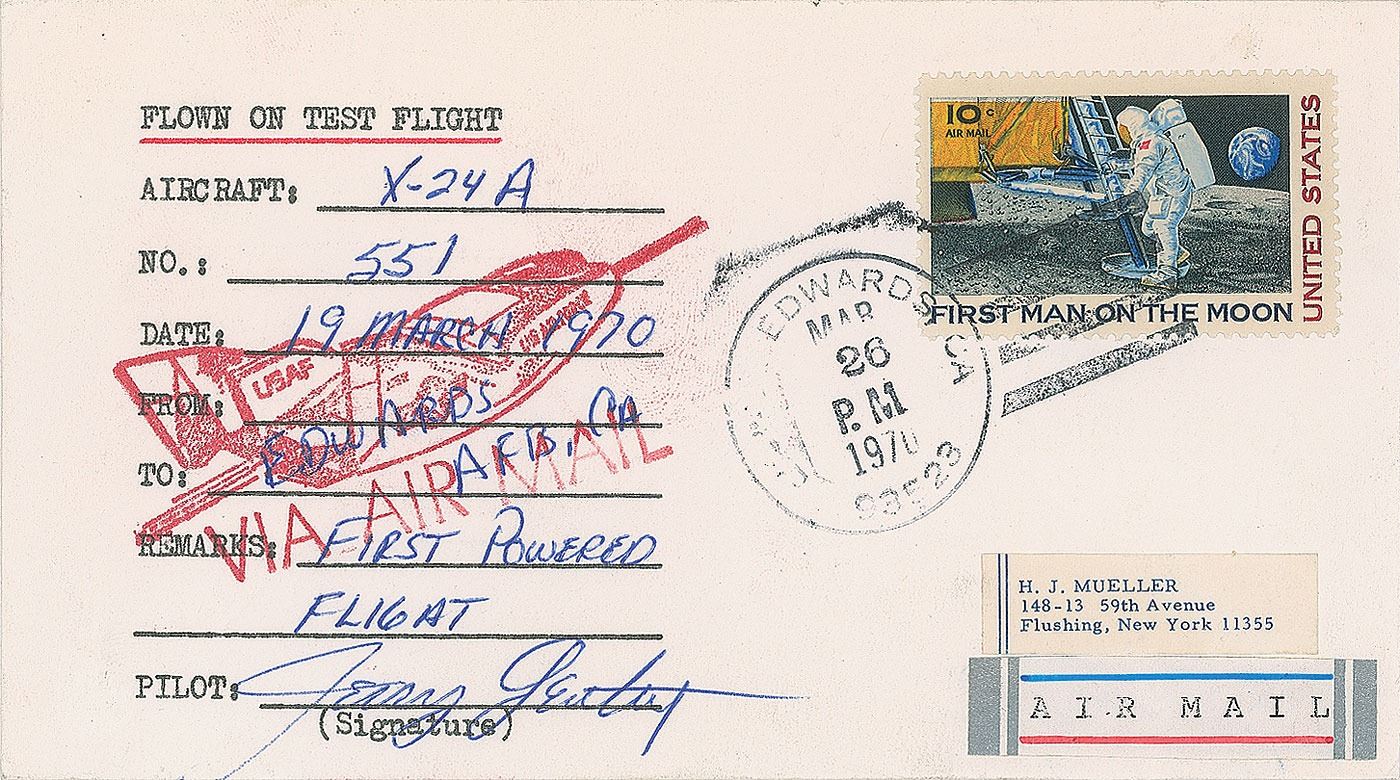 FLOWN ON TEST FLIGHT
AIRCRAFT: X-24 A
NO.: 551
DATE: 19 MARCH 1970
FROM: EDWARDS
TO: AFB, CA
REMARKS: FIRST POWERED
FLIGHT
PILOT: Jerry Gentry
(Signature)
USAF
VIA AIR MAIL
10c
AIR MAIL
UNITED STATES
FIRST MAN ON THE MOON
EDWARDS CA
MAR
26
P.M
1970
93523
H. J. MUELLER
148-13 59th Avenue
Flushing, New York 11355
AIR MAIL